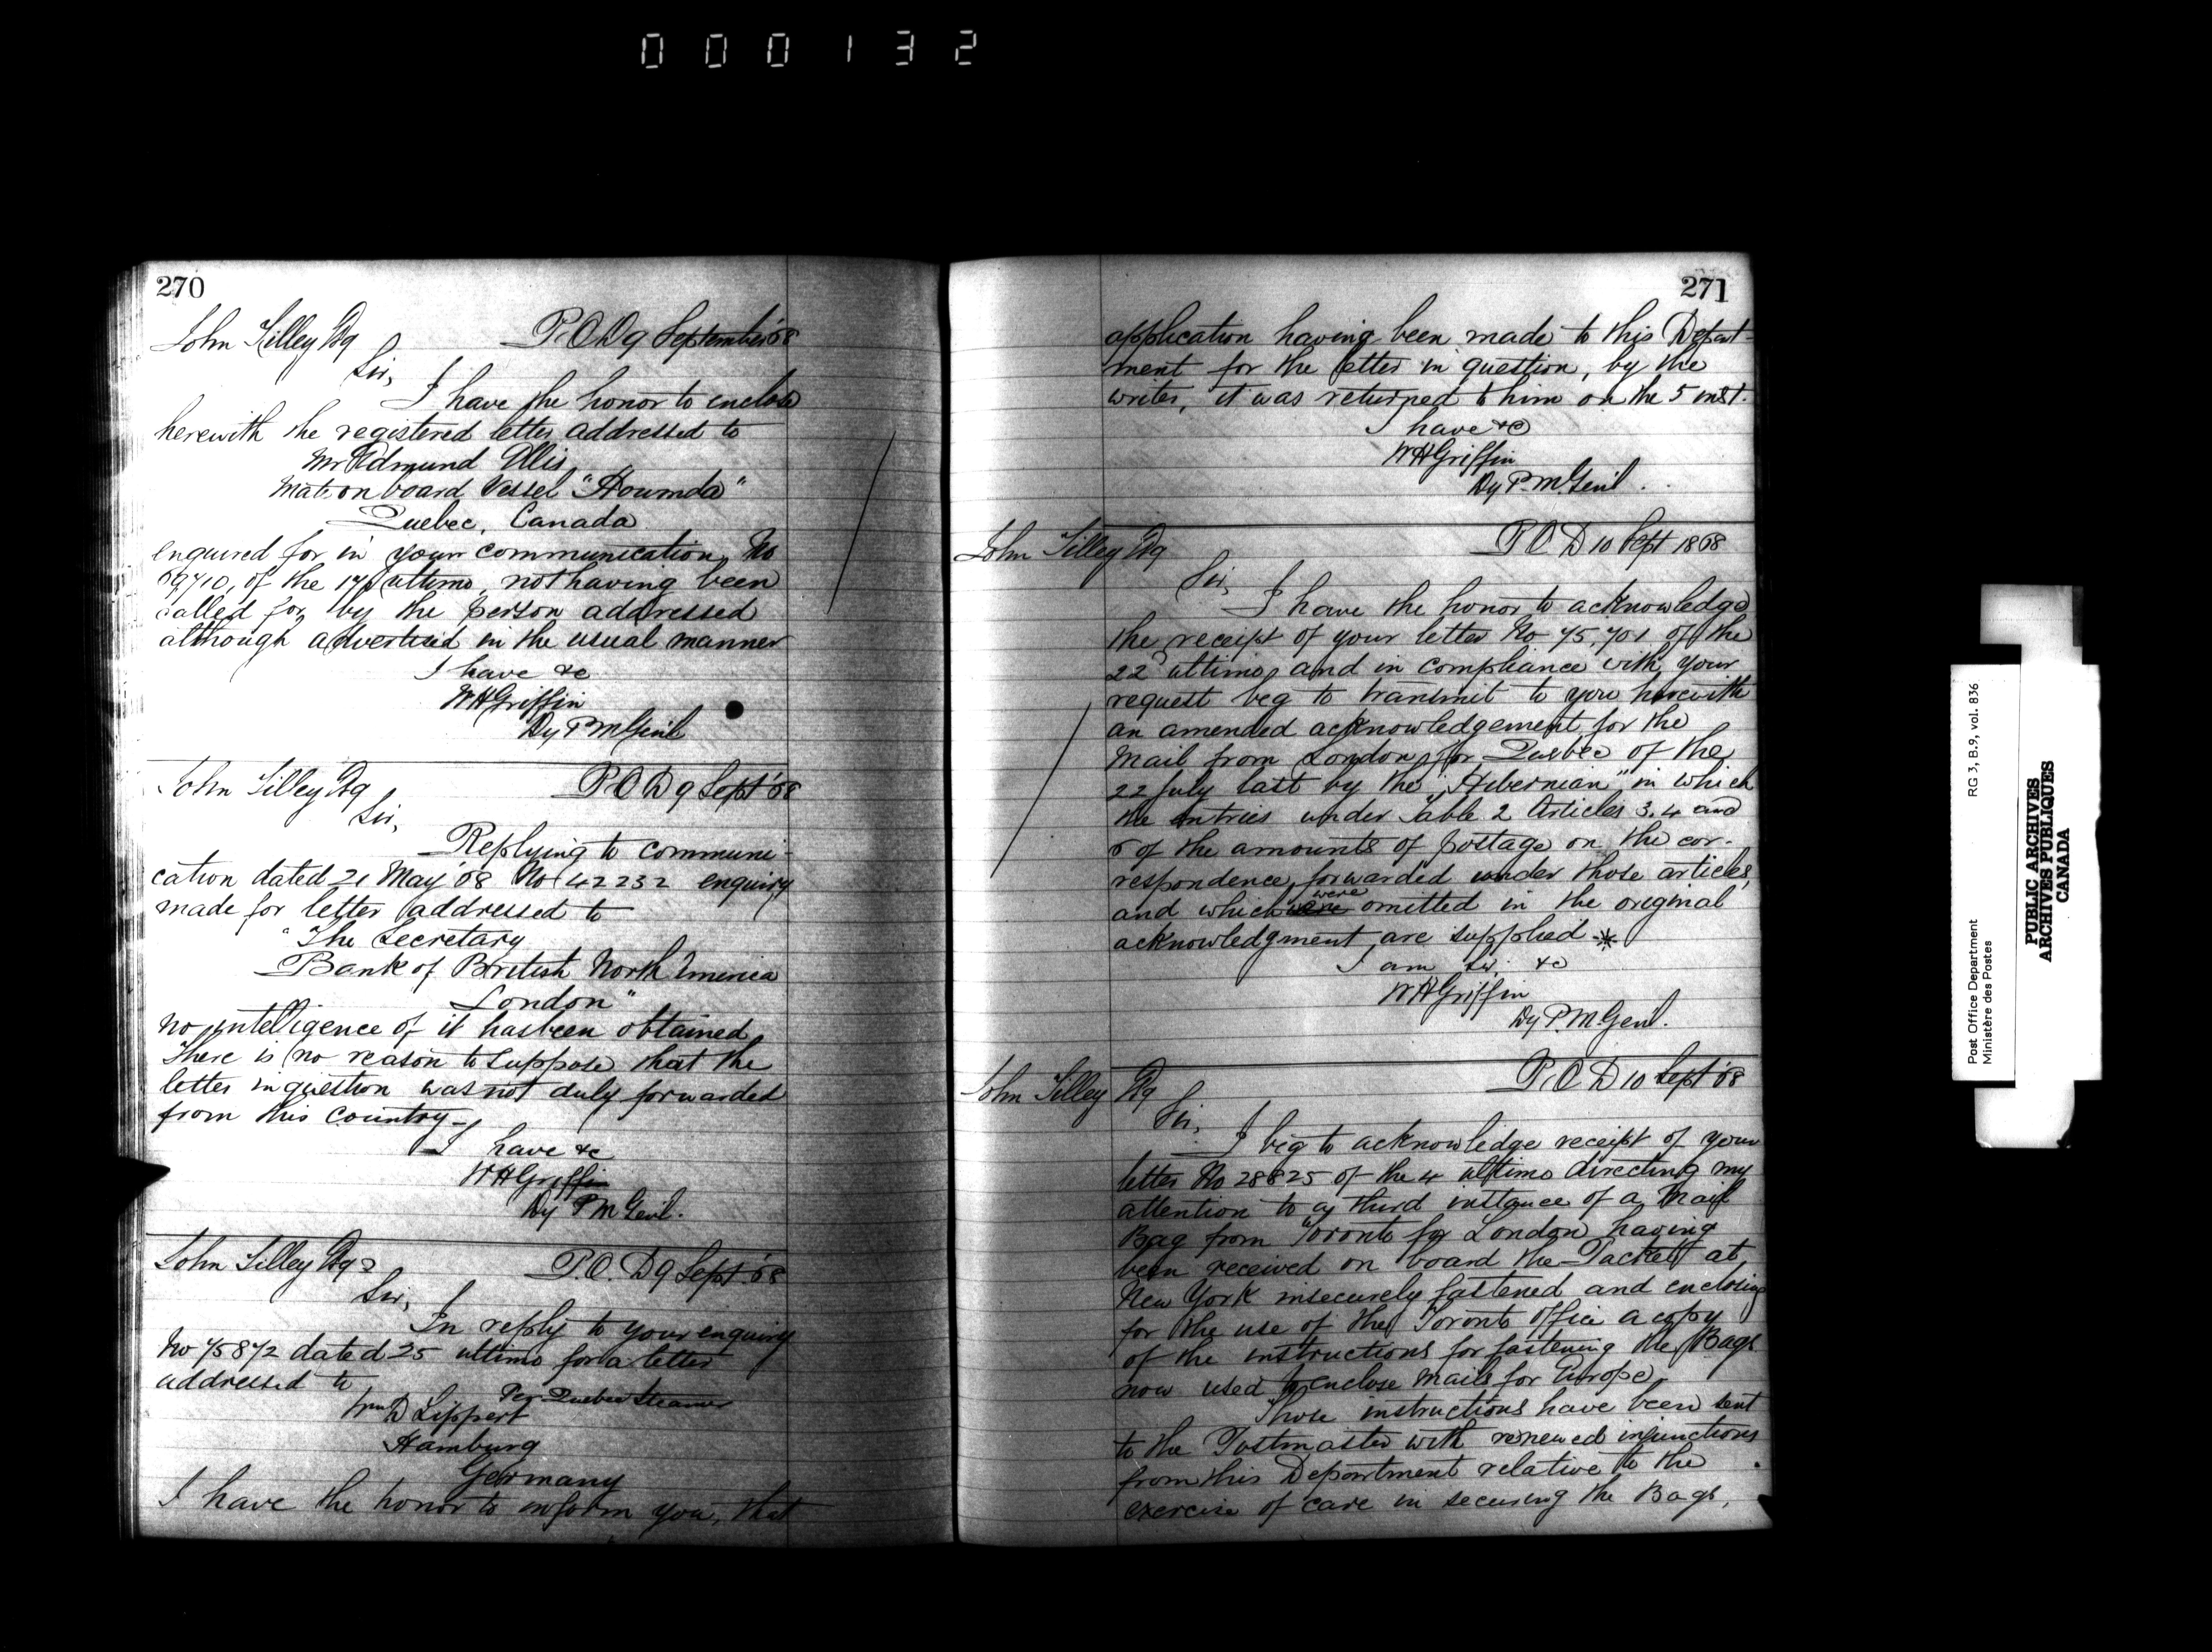 000132
270
John Tilley Esq P.O.D 9 September '68
Sir,
I have the honor to enclose
herewith the registered letter addressed to
Mr Edmund Ellis
Mate on board Vessel "Houmda"
Quebec, Canada
enquired for in your communication, No
69710, of the 17 ultimo, not having been
called for by the person addressed
although advertised in the usual manner
I have &c
W H Griffin
Dy P M Genl
John Tilley Esq P O D 9 Sept '68
Sir,
Replying to communi-
cation dated 21 May '68 No 42232 enquiry
made for letter addressed to
"The Secretary
Bank of British North America
London"
no intelligence of it has been obtained
There is no reason to suppose that the
letter in question was not duly forwarded
from this Country-
I have &c
W H Griffin
Dy P M Genl.
John Tilley Esq P.O. D 9 Sept. '68
Sir,
In reply to your enquiry
No 75872 dated 25 ultimo for a letter
addressed to
Per Quebec Steamer
Wm D Lippert
Hamburg
Germany
I have the honor to inform you, that
271
application having been made to this Depart-
ment for the letter in question, by the
writer, it was returned to him on the 5 inst.
I have &c
W H Griffin
Dy P. M. Genl.
John Tilley Esq P O D 10 Sept 1868
Sir,
I have the honor to acknowledge
the receipt of your letter No 75,701 of the
22d ultimo, and in compliance with your
request beg to transmit to you herewith
an amended acknowledgement for the
Mail from London for Quebec of the
22 July last by the "Hibernian" in which
the entries under Table 2 Articles 3. 4 and
6 of the amounts of postage on the cor-
respondence forwarded under those articles,
and which were omitted in the original
acknowledgment, are supplied *
I am Sir, &c
W H Griffin
Dy P. M Genl.
John Tilley Esq P. O D 10 Sept '68
Sir,
I beg to acknowledge receipt of your
letter No 28825 of the 4 ultimo directing my
attention to a third instance of a Mail
Bag from Toronto for London having
been received on board the Packet at
New York insecurely fastened and enclosing
for the use of the Toronto Office a copy
of the instructions for fastening the Bags
now used to enclose Mails for Europe
Those instructions have been sent
to the Postmaster with renewed injunctions
from this Department relative to the
exercise of care in securing the Bags,
Post Office Department RG 3, B.9, vol. 836
Ministère des Postes
PUBLIC ARCHIVES
ARCHIVES PUBLIQUES
CANADA